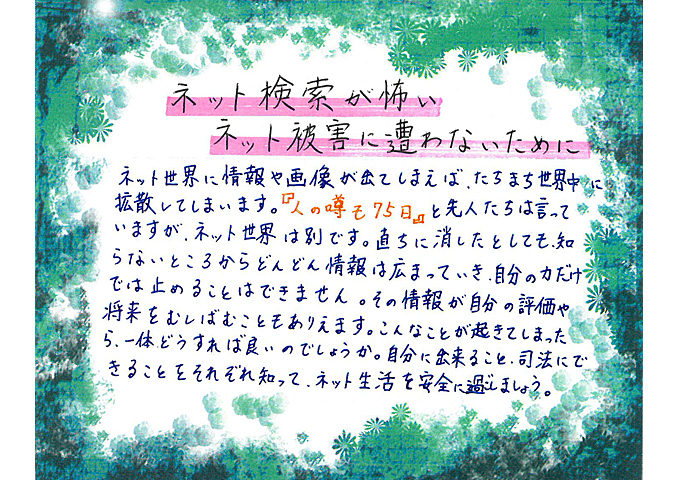 ネット検索が怖い
ネット被害に遭わないために
ネット世界に情報や画像が出てしまえば、たちまち世界中に
拡散してしまいます。『人の噂も75日』と先人たちは言って
いますが、ネット世界は別です。直ちに消したとしても、知
らないところからどんどん情報は広まっていき、自分の力だけ
では止めることはできません。その情報が自分の評価や
将来をむしばむこともありえます。こんなことが起きてしまった
ら、一体どうすれば良いのでしょうか。自分に出来ること、司法にで
きることをそれぞれ知って、ネット生活を安全に過ごしましょう。